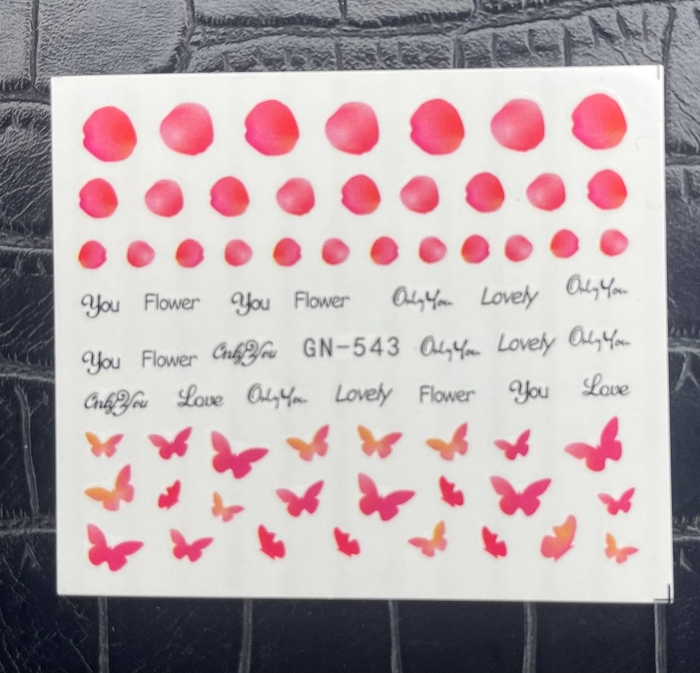 You Flower You Flower Only You Lovely Only You
You Flower Only You GN-543 Only You Lovely Only You
Only You Love Only You Lovely Flower You Love